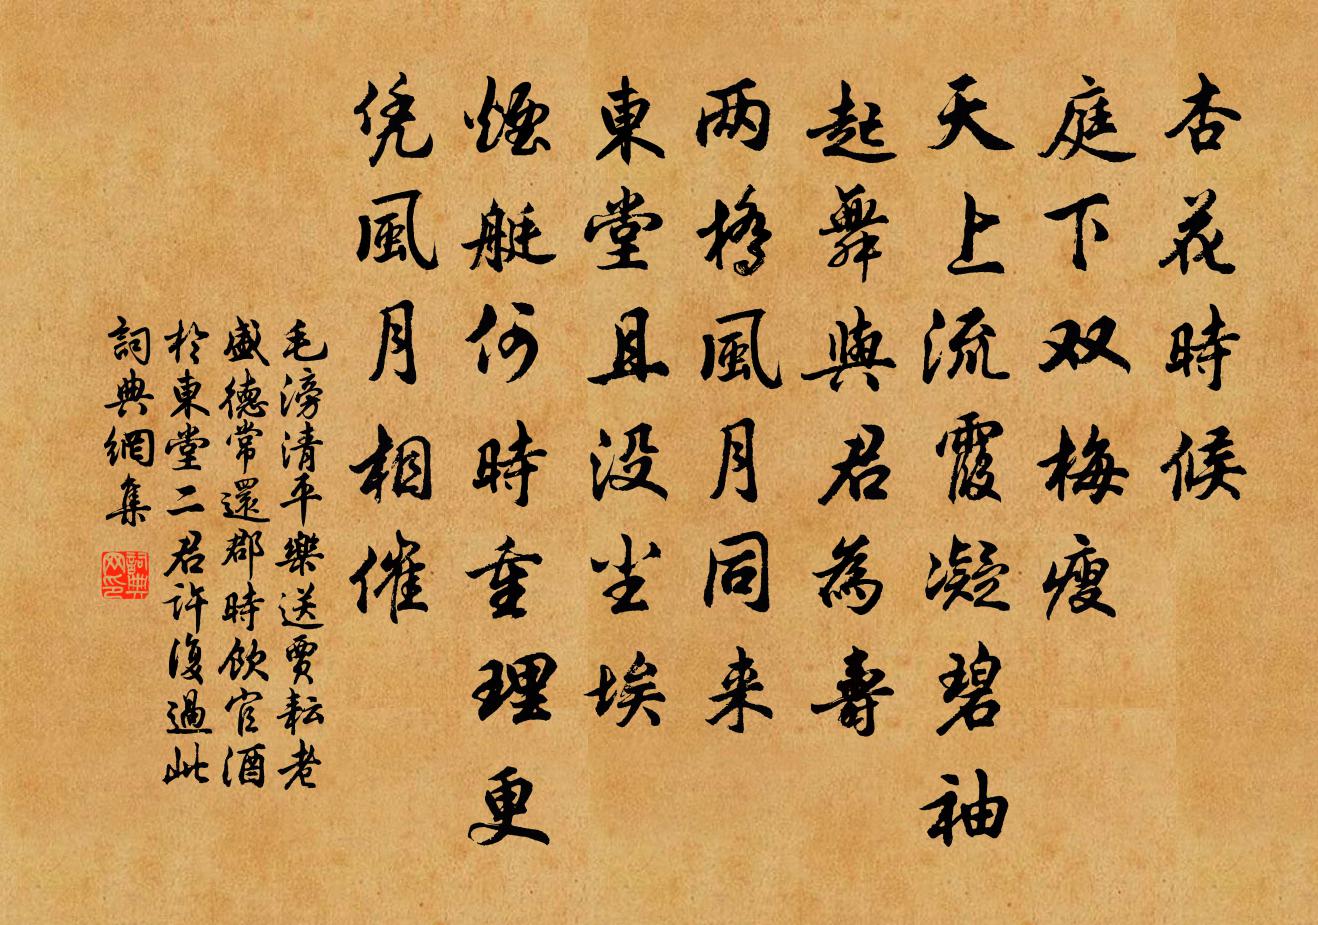 杏花時候
庭下双梅瘦
天上流霞凝碧袖
起舞與君為壽
两橋風月同来
東堂且没尘埃
煙艇何時重理更
凭風月相催
毛滂清平樂送賈耘老
盛德常還郡時飲官酒
於東堂二君許復過此
詞典網集
詞典网印